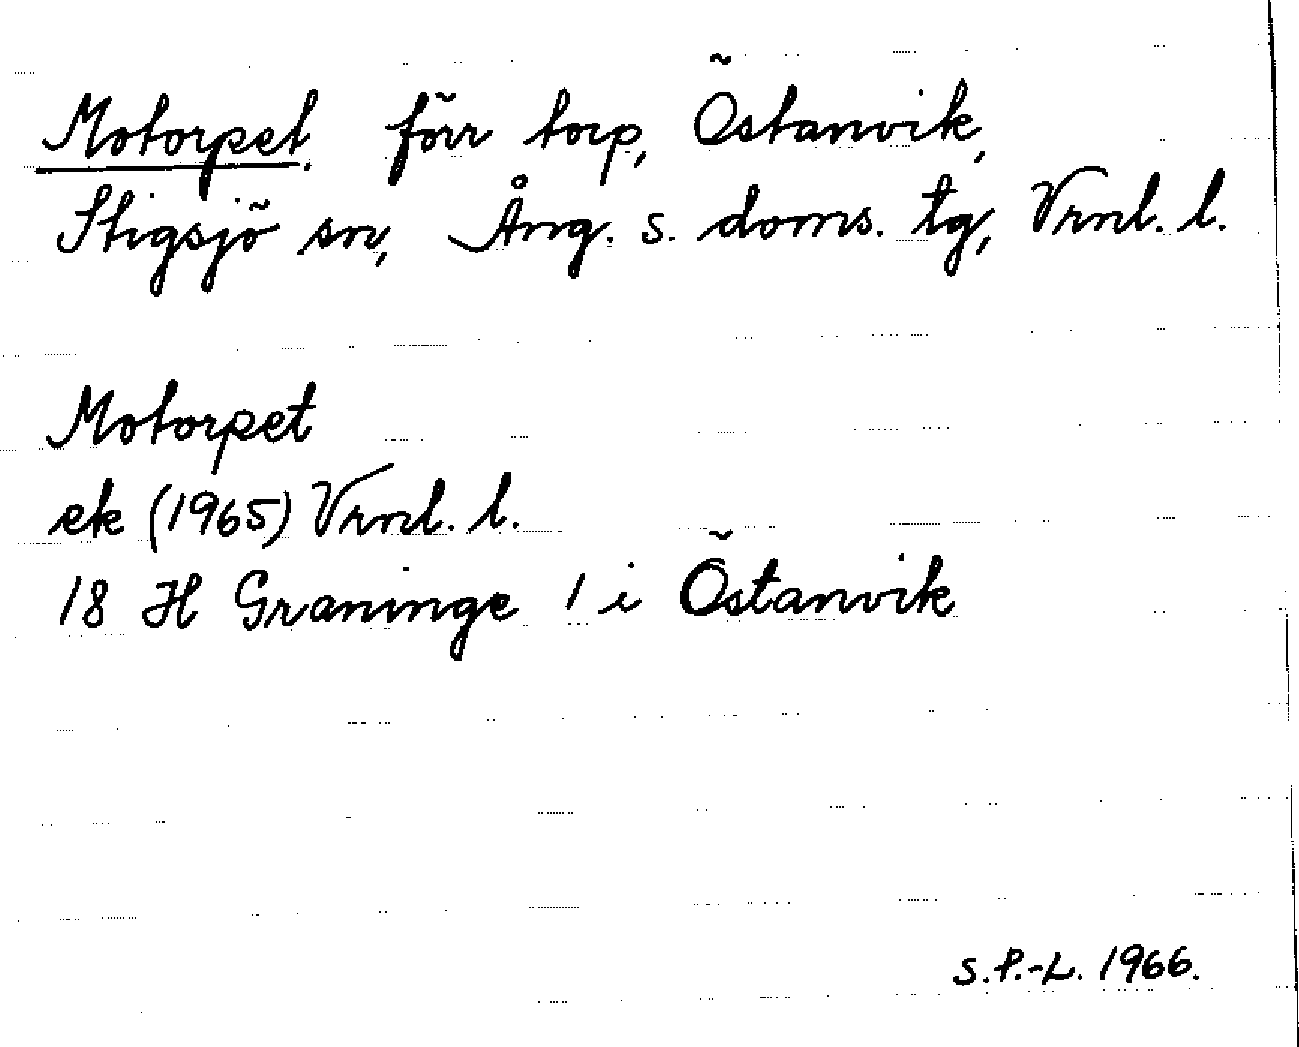 Motorpet. förr torp, Östanvik,
Stigsjö sn, Ång. s. doms. tg, Vrnl. l.
Motorpet
ek (1965) Vrnl. l.
18 H Graninge 1 i Östanvik
S.P.-L. 1966.